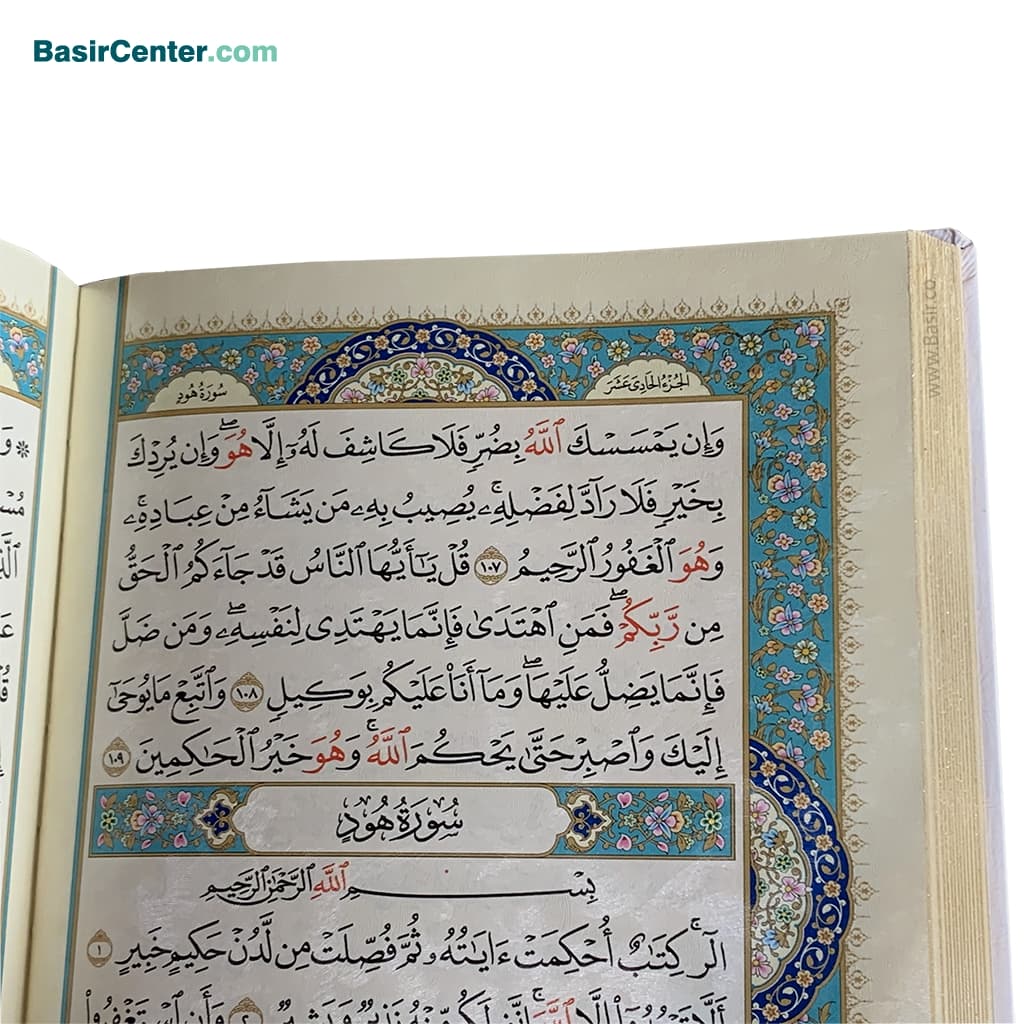 BasirCenter.com
www.Basir.co
الجُزءُ الحَادِى عَشَرَ
سُورَةُ هُودٍ
وَإِن يَمْسَسْكَ ٱللَّهُ بِضُرٍّ فَلَا كَاشِفَ لَهُۥٓ إِلَّا هُوَۖ وَإِن يُرِدْكَ
بِخَيْرٍ فَلَا رَآدَّ لِفَضْلِهِۦۚ يُصِيبُ بِهِۦ مَن يَشَآءُ مِنْ عِبَادِهِۦۚ
وَهُوَ ٱلْغَفُورُ ٱلرَّحِيمُ ١٠٧ قُلْ يَٰٓأَيُّهَا ٱلنَّاسُ قَدْ جَآءَكُمُ ٱلْحَقُّ
مِن رَّبِّكُمْۖ فَمَنِ ٱهْتَدَىٰ فَإِنَّمَا يَهْتَدِى لِنَفْسِهِۦۖ وَمَن ضَلَّ
فَإِنَّمَا يَضِلُّ عَلَيْهَاۖ وَمَآ أَنَا۠ عَلَيْكُم بِوَكِيلٍ ١٠٨ وَٱتَّبِعْ مَا يُوحَىٰٓ
إِلَيْكَ وَٱصْبِرْ حَتَّىٰ يَحْكُمَ ٱللَّهُۚ وَهُوَ خَيْرُ ٱلْحَٰكِمِينَ ١٠٩
سُورَةُ هُودٍ
بِسْمِ ٱللَّهِ ٱلرَّحْمَٰنِ ٱلرَّحِيمِ
الٓرۚ كِتَٰبٌ أُحْكِمَتْ ءَايَٰتُهُۥ ثُمَّ فُصِّلَتْ مِن لَّدُنْ حَكِيمٍ خَبِيرٍ ١
أَلَّا تَعْبُدُوٓا۟ إِلَّا ٱللَّهَۚ إِنَّنِى لَكُم مِّنْهُ نَذِيرٌ وَبَشِيرٌ ٢ وَأَنِ ٱسْتَغْفِرُوا۟